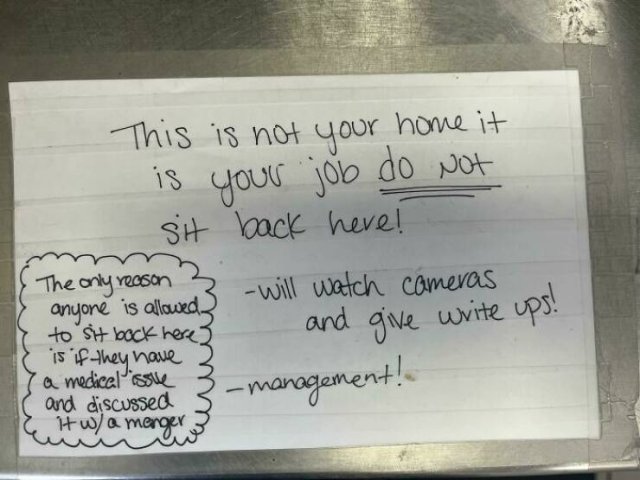 This is not your home it
is your job do NOT
sit back here!
The only reason
anyone is allowed
to sit back here
is if they have
a medical issue
and discussed
it w/ a manger
-will watch cameras
and give write ups!
-management!